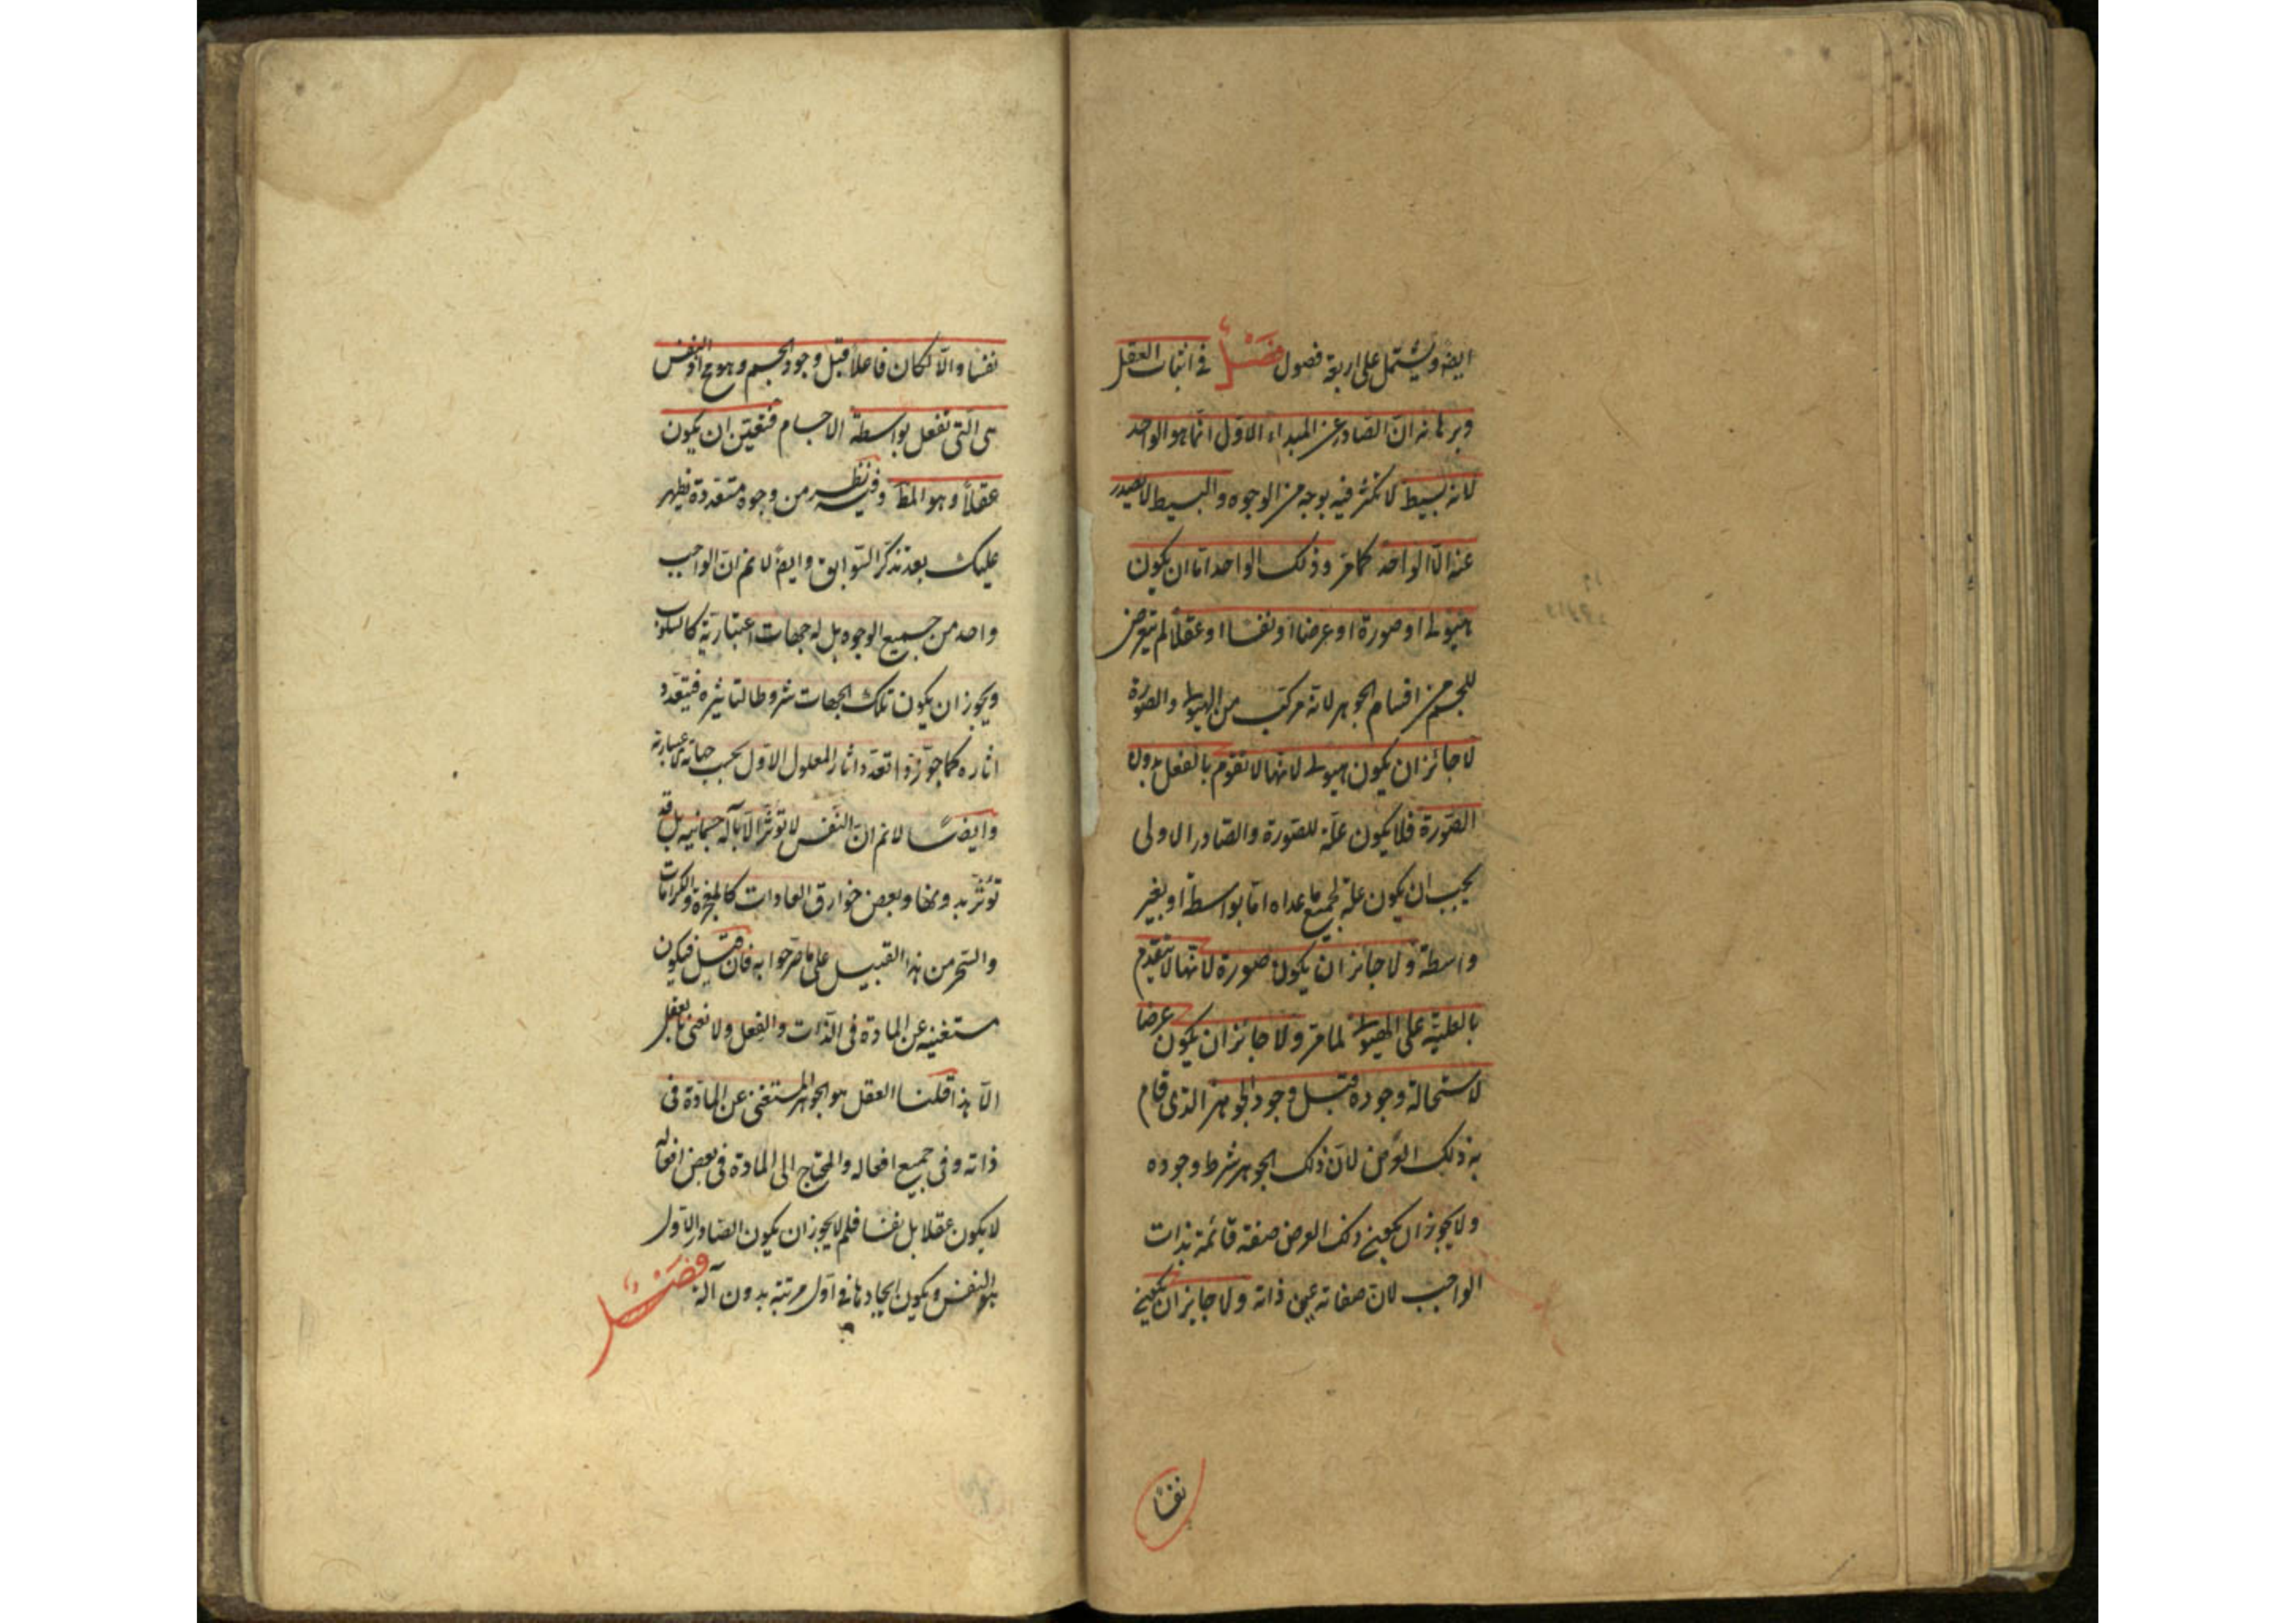 ايضه ويشتمل على اربعة فصول فصل فى اثبات العقل
وبرهانه ان الصادر عن المبداء الاول انما هو الواحد
لانه بسيط لا تكثر فيه بوجه من الوجوه والبسيط لا يصدر
عنه الا الواحد كما مر وذلك الواحد اما ان يكون
هيولى او صورة او عرضا او نفسا او عقلا لم يتعرض
للجسم من اقسام الجوهر لانه مركب من الهيولى والصورة
لا جائز ان يكون هيولى لانها لا تقوم بالفعل بدون
الصورة فلا يكون علة للصورة والصادر الاولى
يجب ان يكون علة لجميع ما عداه اما بواسطة او بغير
واسطة ولا جائز ان يكون صورة لانها لا تتقدم
بالعلية على الهيولى لما مر ولا جائز ان يكون عرضا
لاستحالة وجوده قبل وجود الجوهر الذى قام
به ذلك العرض لان ذلك الجوهر شرط وجوده
ولا يجوز ان يكون ذلك العرض صفة قائمة بذات
الواجب لان صفاته عين ذاته ولا جايز ان يكون
نفسا
نفسا والا لكان فاعلا قبل وجود الجسم وهو مح اذ النفس
هى التى تفعل بواسطة الاجسام فتعين ان يكون
عقلا وهو المط وفيه نظر من وجوه متعددة يظهر
عليك بعد تذكر السوابق وايضا لا نم ان الواجب
واحد من جميع الوجوه بل له جهات اعتبارية كالسلوب
ويجوز ان يكون تلك الجهات شروطا لتاثيره فيتعدد
اثاره كما جوزوا تعدد اثار المعلول الاول بحسب جهاته الاعتبارية
وايضا لا نم ان النفس لا تؤثر الا بآلة جسمانيه بل قد
تؤثر بدونها وبعض خوارق العادات كالمعجزة والكرامات
والسحر من هذا القبيل على ما صرحوا به فان قيل فيكون
مستغنيه عن المادة فى الذات والفعل ولا نعنى بالعقل
الا هذا قلنا العقل هو الجوهر المستغنى عن المادة فى
ذاته وفى جميع افعاله والمحتاج الى المادة فى بعض افعاله
لا يكون عقلا بل نفسا فلم لا يجوز ان يكون الصادر الاول
هو النفس ويكون ايجادها فى اول مرتبة بدون آلة فصل